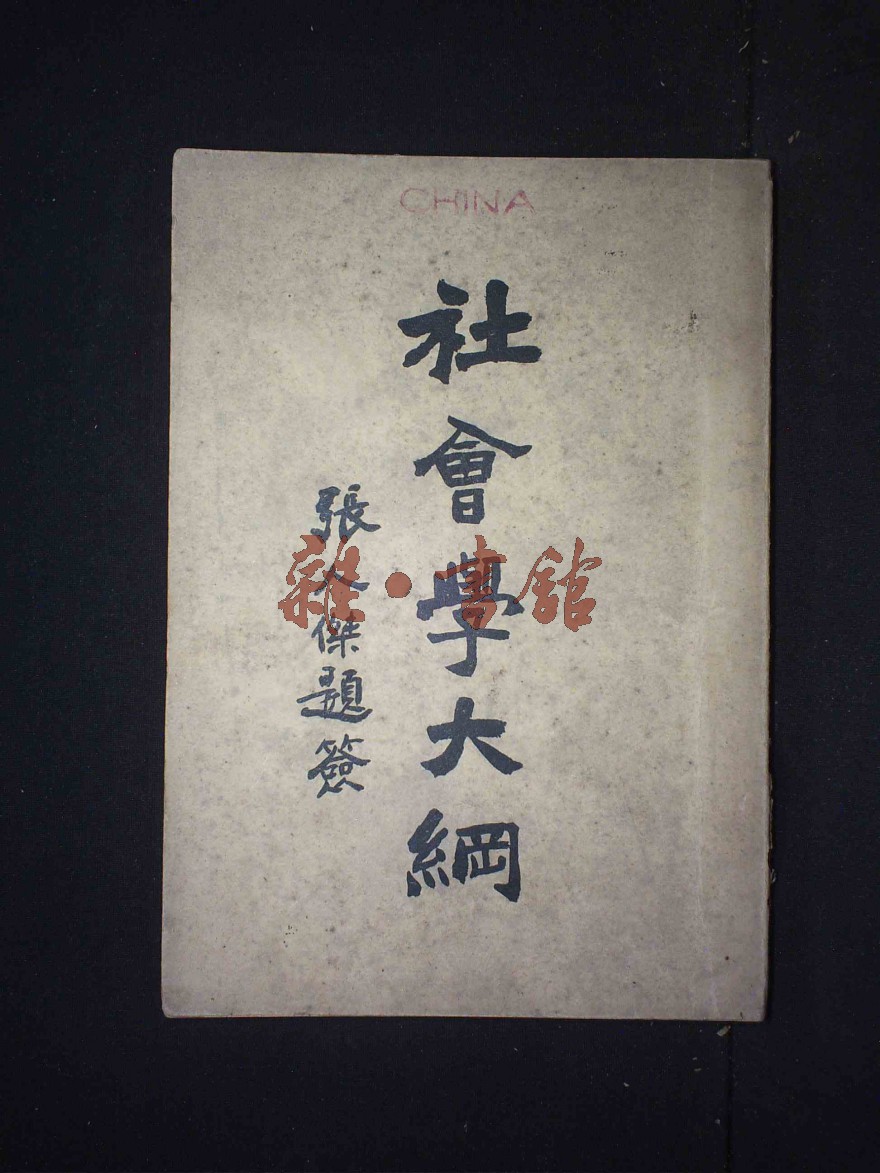 CHINA
社會學大綱
張人傑題簽
雜·書館